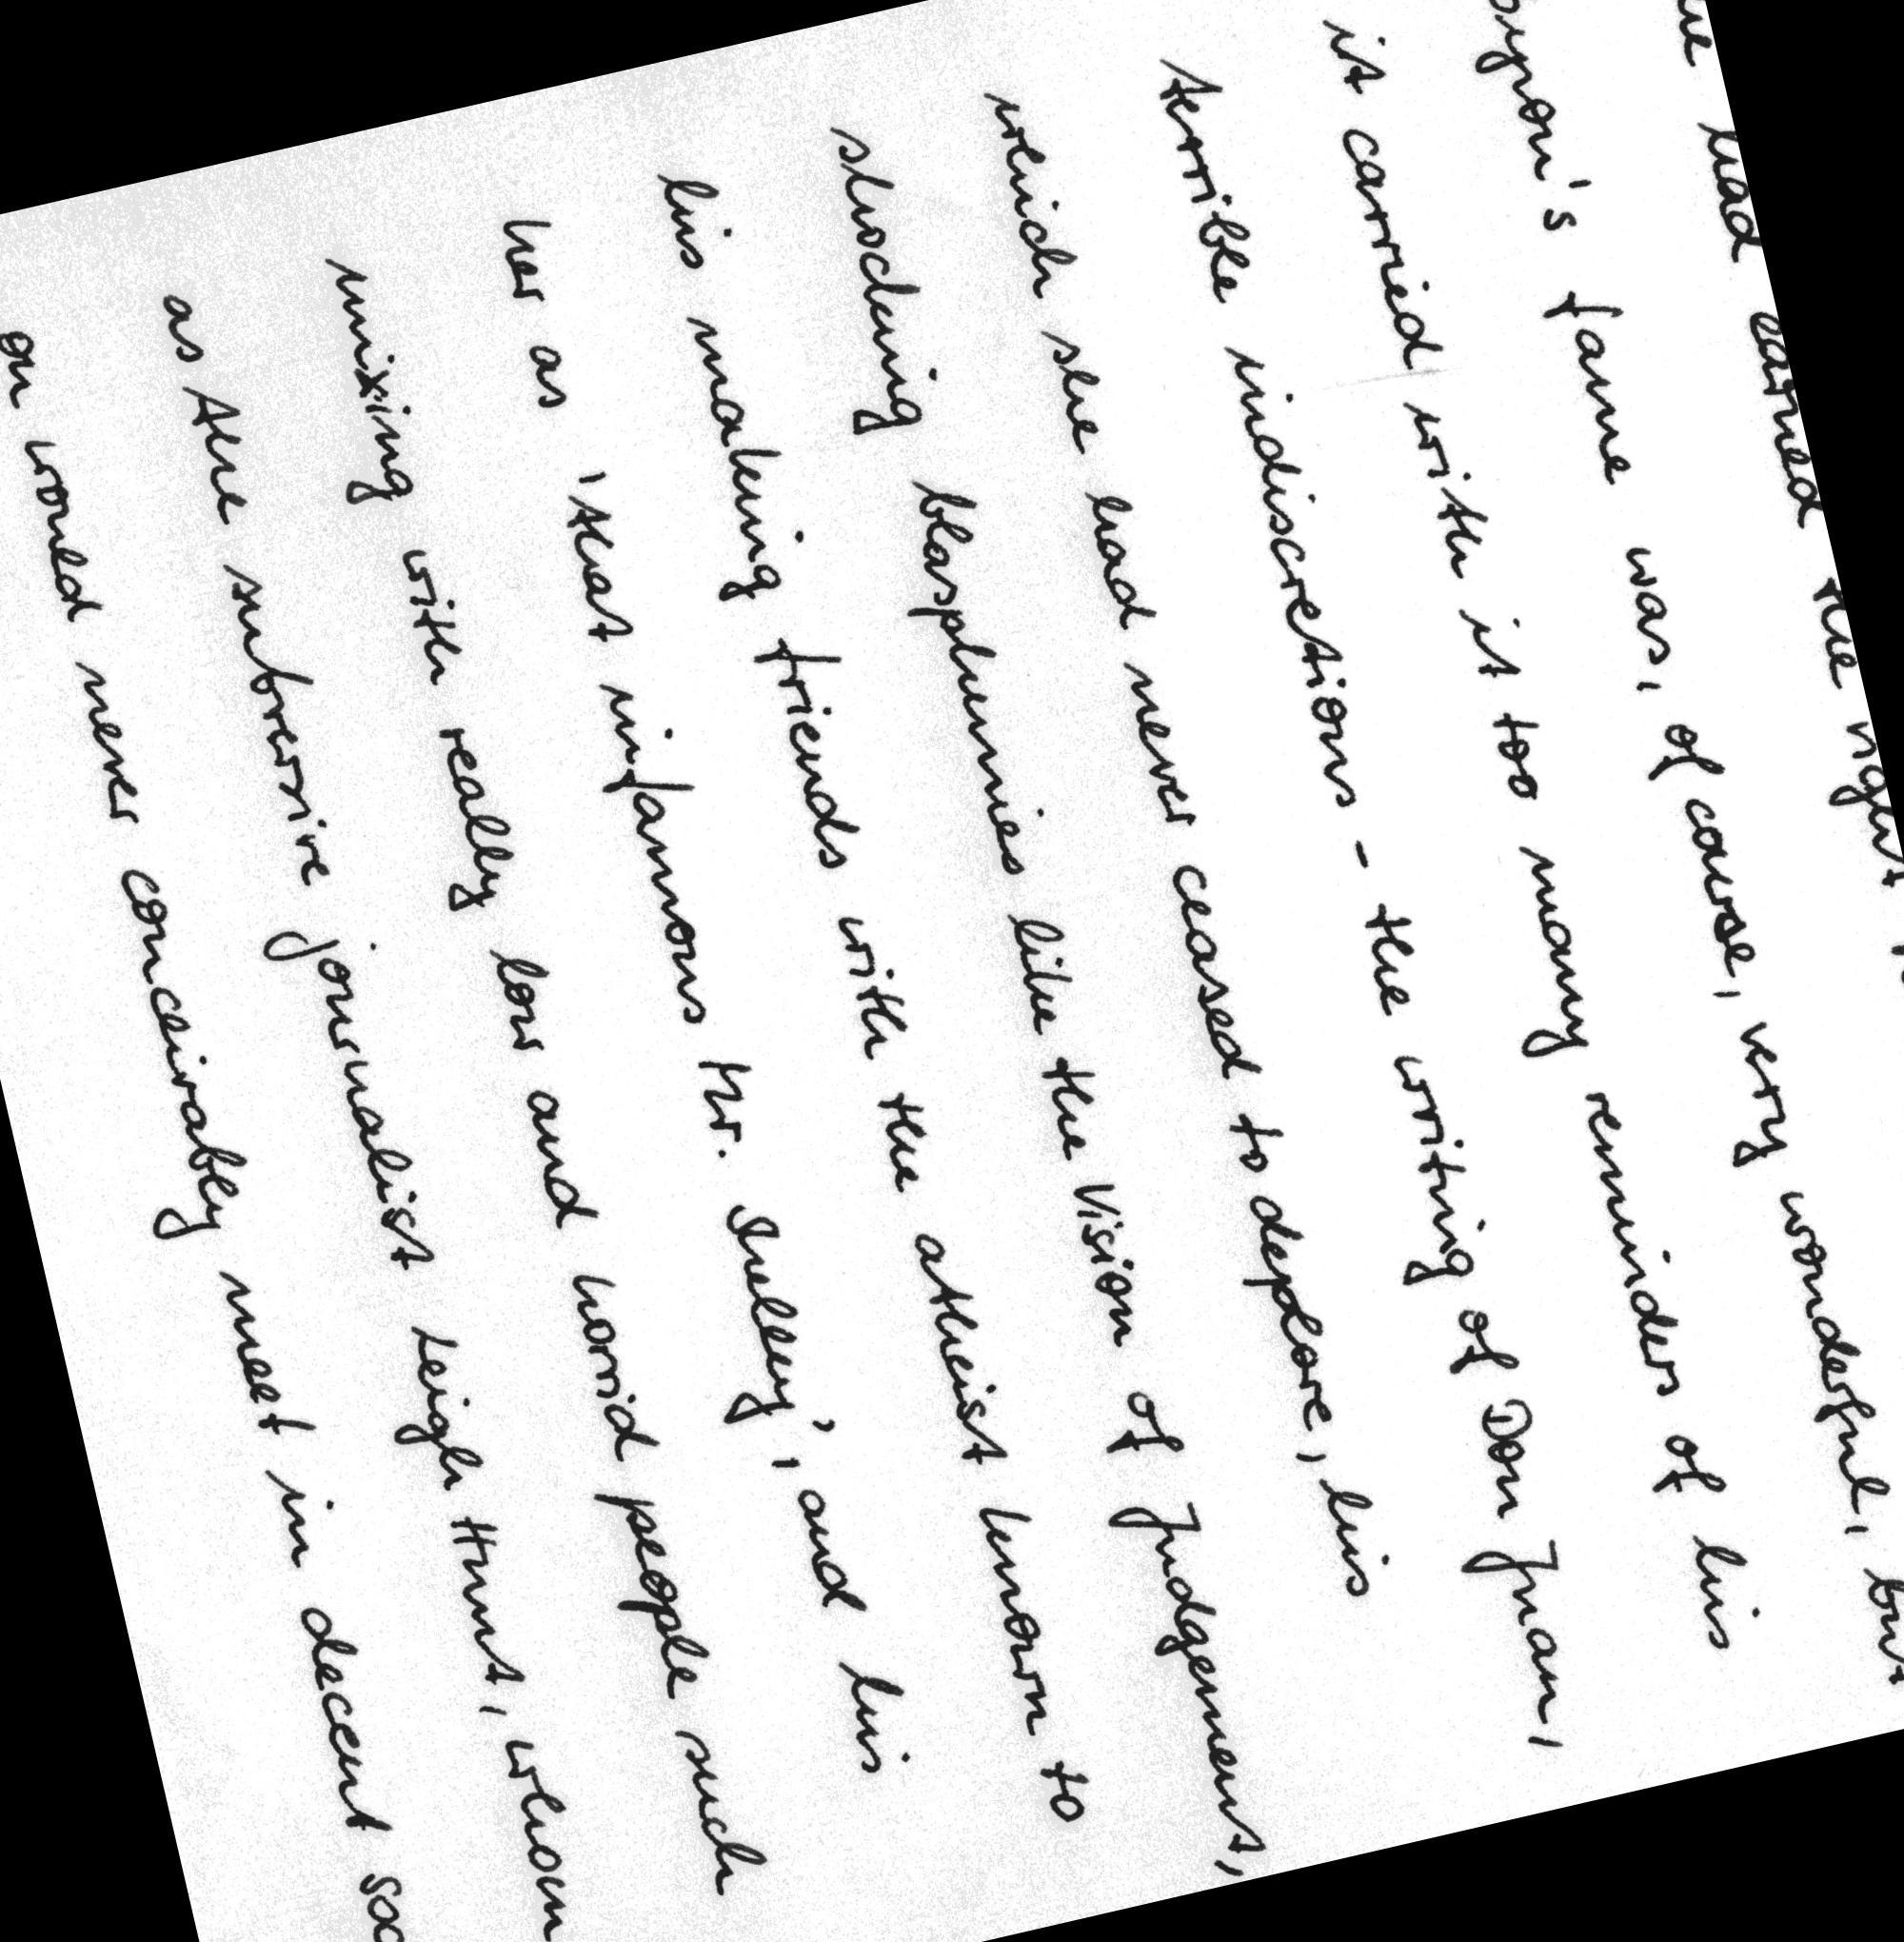 had earned the right
Byron's fame was, of course, very wonderful, but
it carried with it too many reminders of his
terrible indiscretions - the writing of Don Juan,
which she had never ceased to deplore, his
shocking blasphemies like the Vision of Judgement,
his making friends with the atheist known to
her as 'that infamous Mr. Shelley', and his
mixing with really low and horrid people such
as the subversive journalist Leigh Hunt, whom
on would never conceivably meet in decent soc